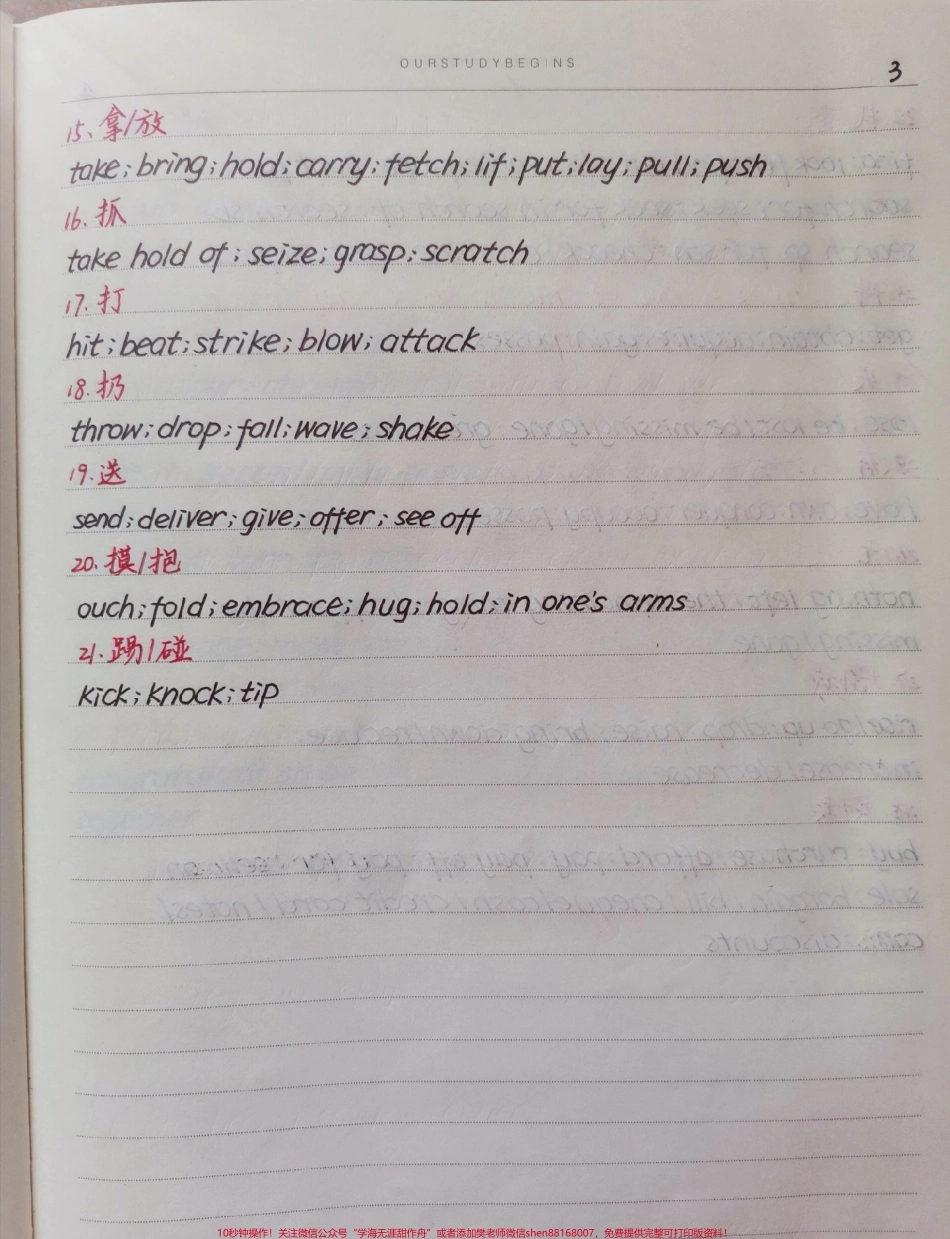 OURSTUDYBEGINS
3
15、拿/放
take; bring; hold; carry; fetch; lif; put; lay; pull; push
16. 抓
take hold of; seize; grasp; scratch
17. 打
hit; beat; strike; blow; attack
18. 扔
throw; drop; fall; wave; shake
19. 送
send; deliver; give; offer; see off
20. 摸/抱
ouch; fold; embrace; hug; hold; in one's arms
21. 踢/碰
kick; knock; tip
10秒钟操作！关注微信公众号“学海无涯甜作舟”或者添加樊老师微信shen88168007，免费提供完整可打印版资料！